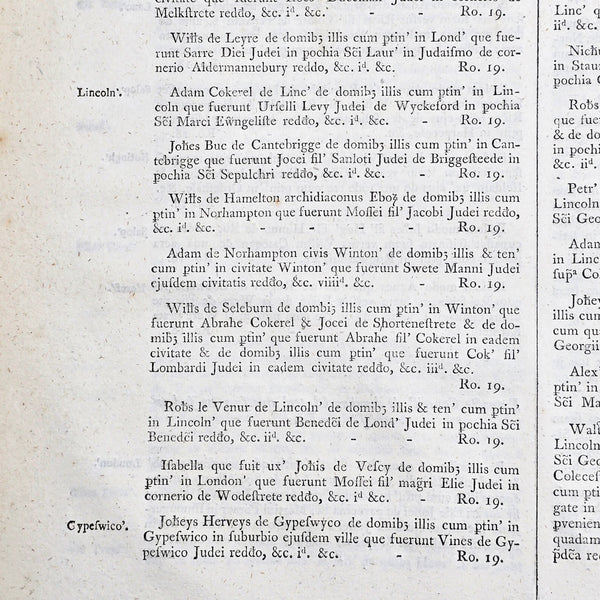 civitate que fuerunt
Melkſtrete reddo, &c. iᵈ. &c. - - Ro. 19.
Wiłłs de Leyre de domibꝫ illis cum ptin' in Lond' que fue-
runt Sarre Diei Judei in pochia Sc̃i Laur' in Judaiſmo de cor-
nerio Aldermannebury reddo, &c. iᵈ. &c. Ro. 19.
Lincoln'. Adam Cokerel de Linc' de domibꝫ illis cum ptin' in Lin-
coln que fuerunt Urſelli Levy Judei de Wyckeford in pochia
Sc̃i Marci Ewngeliſte reddo, &c. iᵈ. &c. - Ro. 19.
Joħes Buc de Cantebrigge de domibꝫ illis cum ptin' in Can-
tebrigge que fuerunt Jocei fil' Sanloti Judei de Briggeſteede in
pochia Sc̃i Sepulchri reddo, &c. iᵈ. &c. - Ro. 19.
Wiłłs de Hamelton archidiaconus Eboꝝ de domibꝫ illis cum
ptin' in Norhampton que fuerunt Moſſei fil' Jacobi Judei reddo,
&c. iᵈ. &c. - - - - Ro. 19.
Adam de Norhampton civis Winton' de domibꝫ illis & ten'
cum ptin' in civitate Winton' que fuerunt Swete Manni Judei
ejuſdem civitatis reddo, &c. viiiiᵈ. &c. - Ro. 19.
Wiłłs de Seleburn de domibꝫ illis cum ptin' in Winton' que
fuerunt Abrahe Cokerel & Jocei de Shorteneſtrete & de do-
mibꝫ illis cum ptin' que fuerunt Abrahe fil' Cokerel in eadem
civitate & de domibꝫ illis cum ptin' que fuerunt Cok' fil'
Lombardi Judei in eadem civitate reddo, &c. iiiᵈ. &c.
Ro. 19.
Robs le Venur de Lincoln' de domibꝫ illis & ten' cum ptin'
in Lincoln' que fuerunt Benedc̃i de Lond' Judei in pochia Sc̃i
Benedc̃i reddo, &c. iiᵈ. &c. - - Ro. 19.
Iſabella que fuit ux' Joħis de Veſcy de domibꝫ illis cum
ptin' in London' que fuerunt Moſſei fil' mag̃ri Elie Judei in
cornerio de Wodeſtrete reddo, &c. iᵈ &c. - Ro. 19.
Gypeſwico'. Joħeys Herveys de Gypeſwyco de domibꝫ illis cum ptin' in
Gypeſwico in ſuburbio ejuſdem ville que fuerunt Vines de Gy-
peſwico Judei reddo, &c. iᵈ. &c. - Ro. 19.
Linc' q
iiᵈ. &c.
Nich
in Stau
pochia
Robs
que fue
& de do
in pochi
&c. iiᵈ.
Petr'
Lincoln
Sc̃i Geo
Adam
in Linc
fup̃ᵃ Co
Joħey
illis cum
cum qu
Georgii
Alex'
ptin' in
Sc̃i Ma
Walt
Lincoln
Sc̃i Geo
Coleceſ
cum pti
gate in
pvenien
quadam
p̃dc̃a red